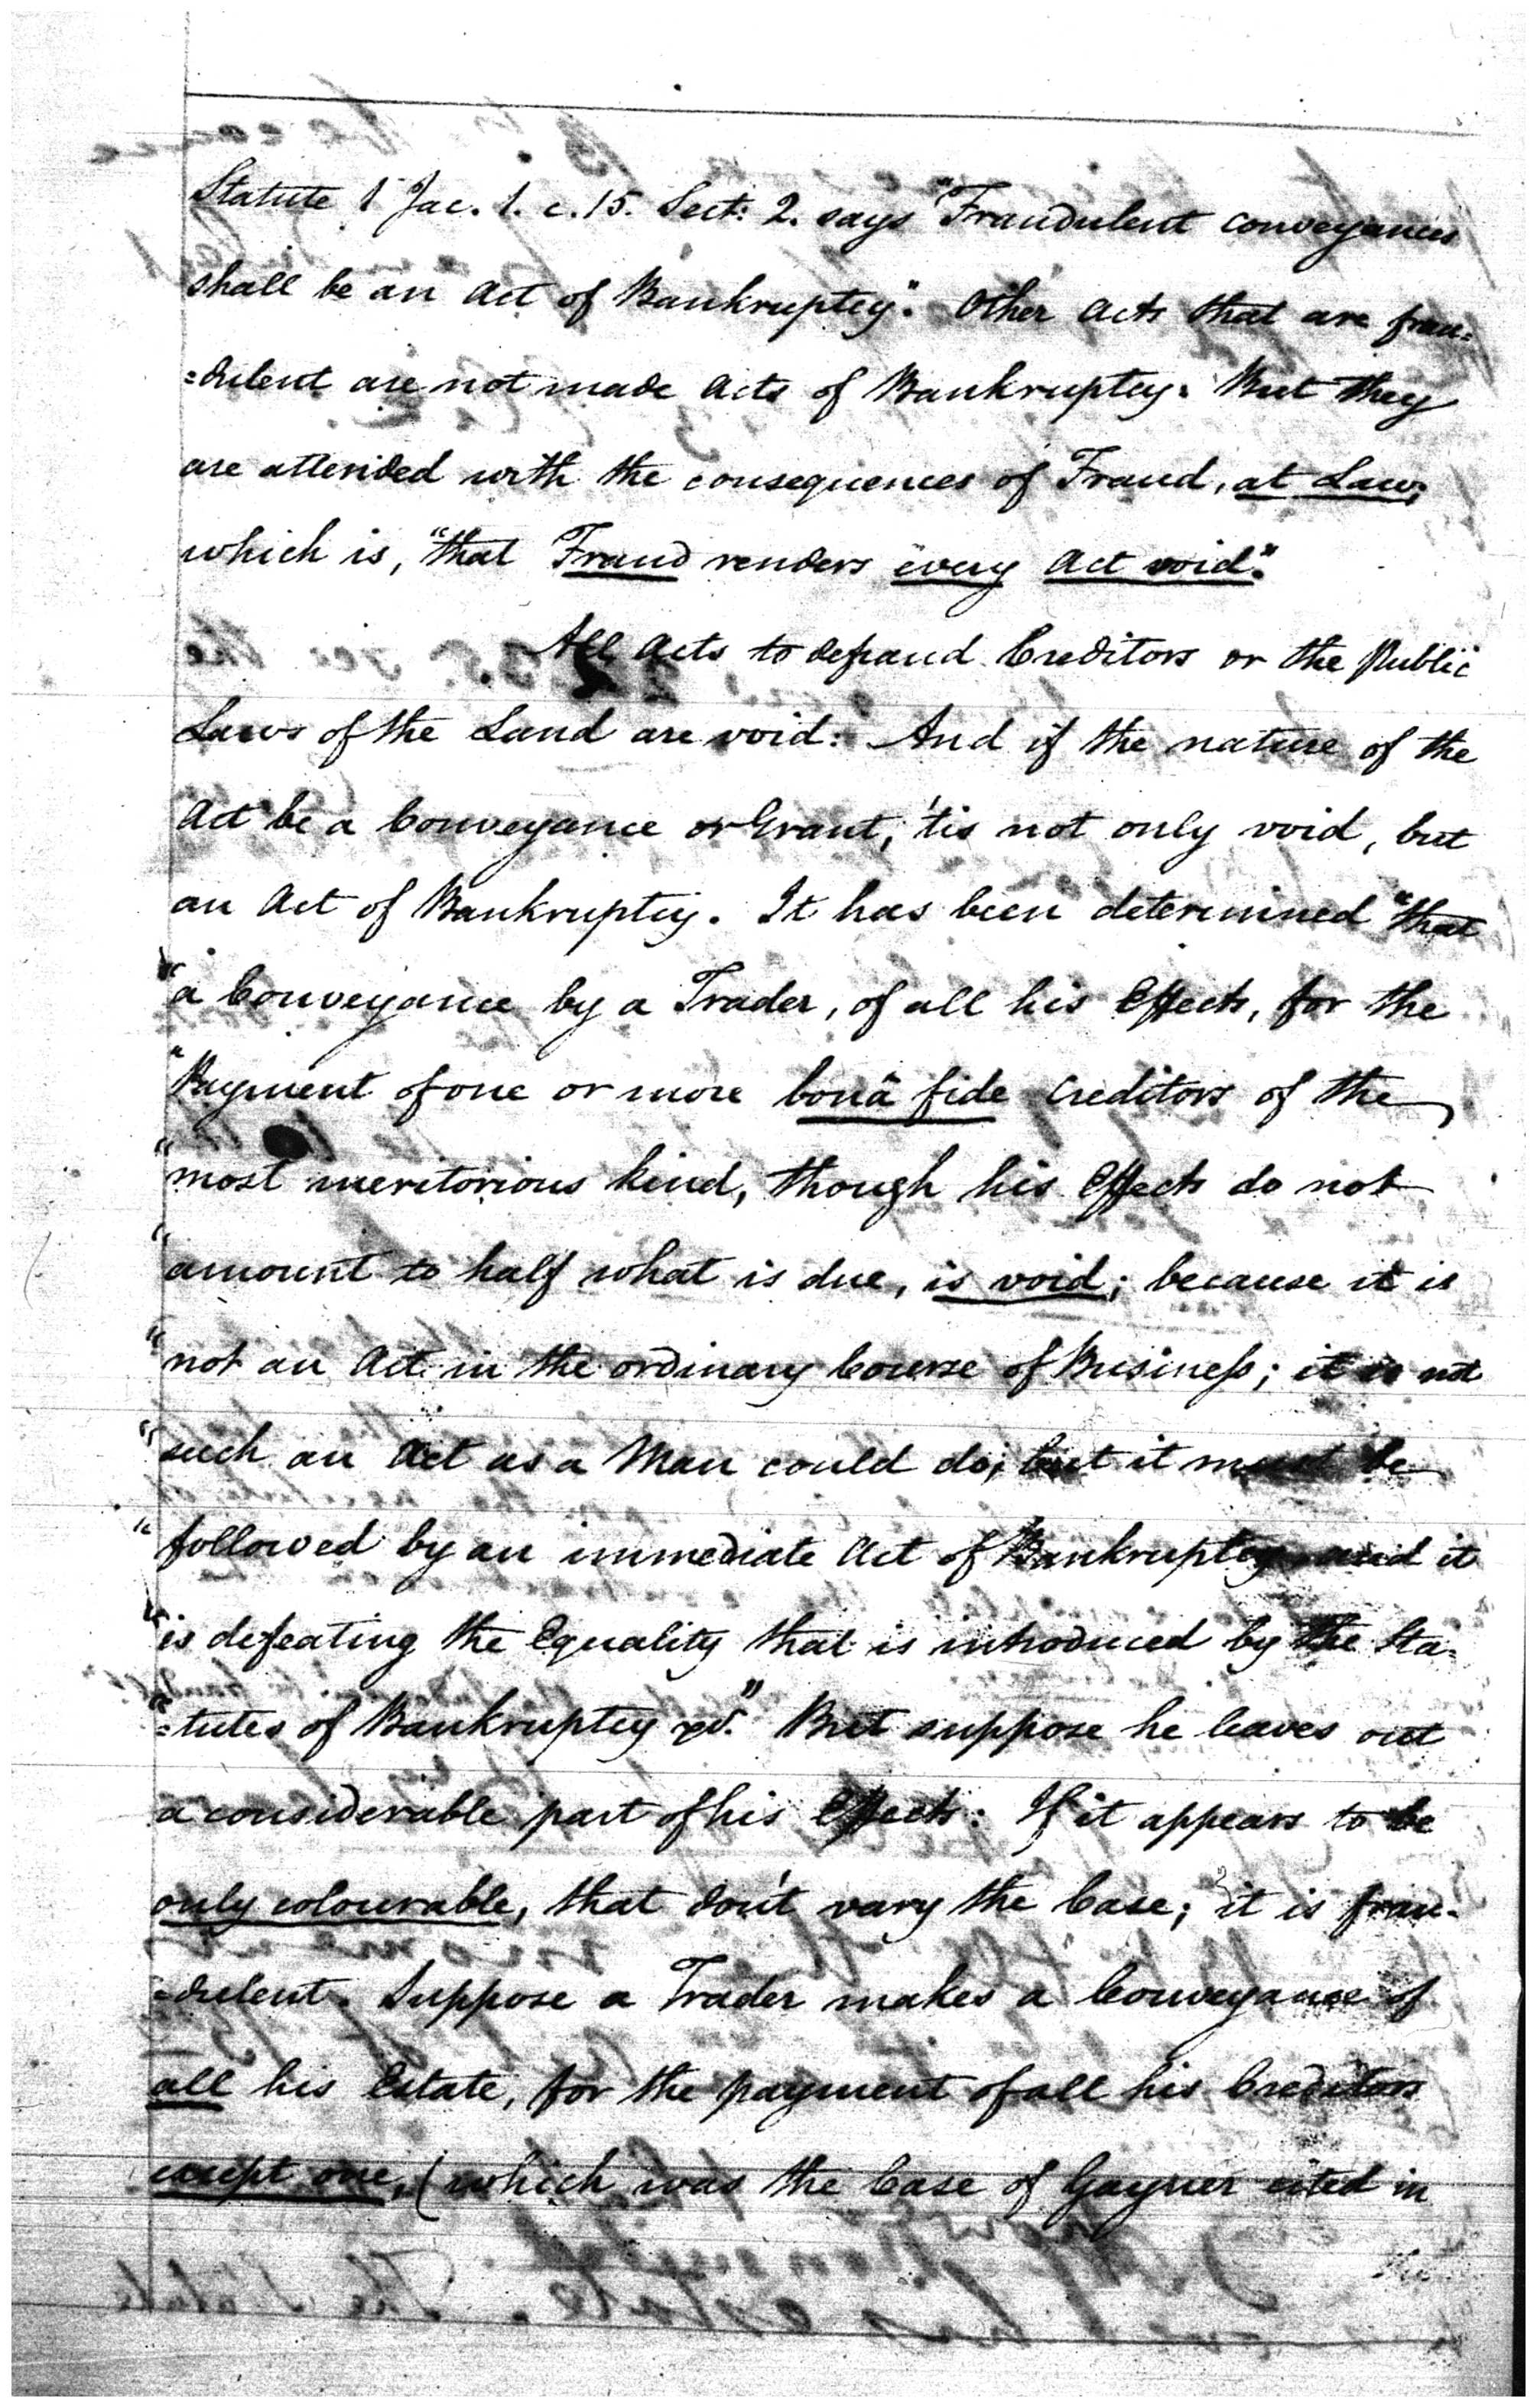 Statute 1 Jac. 1. c. 15. Sect: 2. says "Fraudulent conveyances
shall be an Act of Bankruptcy". Other Acts that are frau=
=dulent are not made Acts of Bankruptcy. But they
are attended with the consequences of Fraud, at Law;
which is, "that Fraud renders every Act void".
All Acts to defraud Creditors or the Public
Laws of the Land are void: And if the nature of the
Act be a Conveyance or Grant, 'tis not only void, but
an Act of Bankruptcy. It has been determined "that
"a Conveyance by a Trader, of all his Effects, for the
"Payment of one or more bonâ fide Creditors of the
"most meritorious kind, though his Effects do not
"amount to half what is due, is void; because it is
"not an Act in the ordinary Course of Business; it is not
"such an Act as a Man could do; but it must be
"followed by an immediate Act of Bankruptcy and it
"is defeating the Equality that is introduced by the Sta=
"=tutes of Bankruptcy &c." But suppose he leaves out
a considerable part of his Effects: If it appears to be
only colourable, that don't vary the Case; it is frau=
=dulent. Suppose a Trader makes a Conveyance of
all his Estate, for the payment of all his Creditors
except one, (which was the Case of Gayner cited in